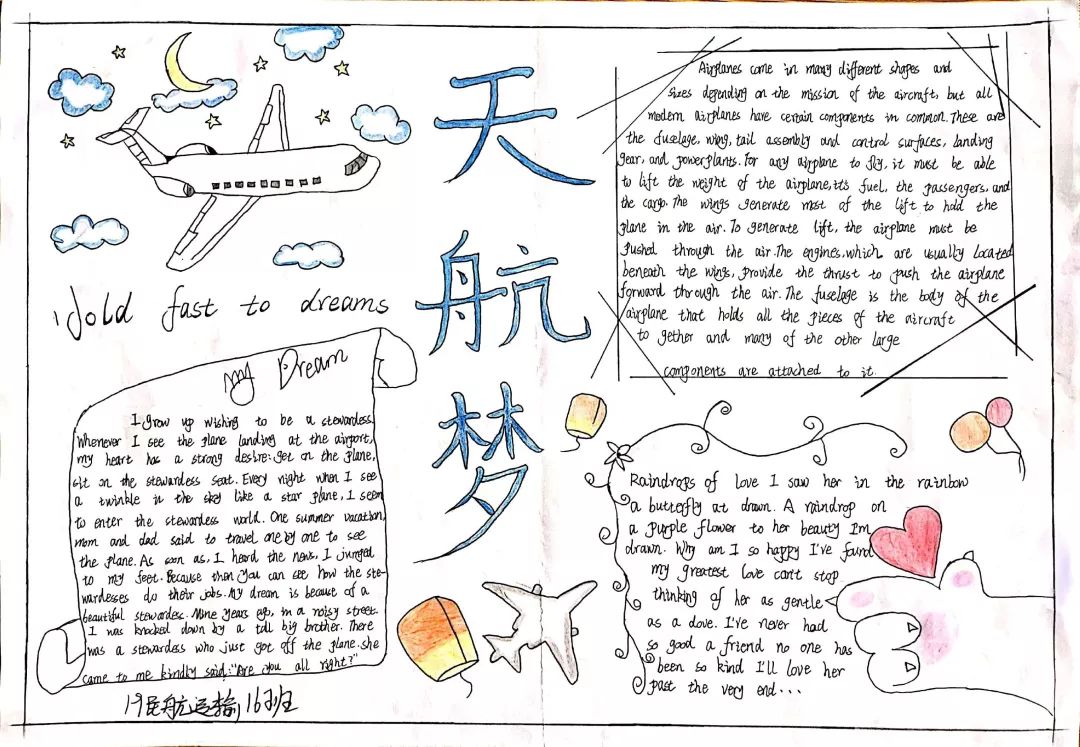 天
航
梦
Hold fast to dreams
My Dream
I grow up wishing to be a stewardess.
Whenever I see the plane landing at the airport,
my heart has a strong desire: get on the plane,
sit on the stewardess seat. Every night when I see
a twinkle in the sky like a star plane, I seem
to enter the stewardess world. One summer vacation,
mom and dad said to travel one by one to see
the plane. As soon as, I heard the news, I jumped
to my feet. Because then you can see how the ste-
wardesses do their jobs. My dream is because of a
beautiful stewardess. Nine years ago, in a noisy street.
I was knocked down by a tall big brother. There
was a stewardess who just got off the plane. she
came to me kindly said: "Are you all right?"
19民航运输16班
Airplanes come in many different shapes and
sizes depending on the mission of the aircraft, but all
modern airplanes have certain components in common. These are
the fuselage, wing, tail assembly and control surfaces, landing
gear, and powerplants. For any airplane to fly, it must be able
to lift the weight of the airplane, it's fuel, the passengers, and
the cargo. The wings generate most of the lift to hold the
plane in the air. To generate lift, the airplane must be
pushed through the air. The engines, which are usually located
beneath the wings, provide the thrust to push the airplane
forward through the air. The fuselage is the body of the
airplane that holds all the pieces of the aircraft
to gether and many of the other large
components are attached to it.
Raindrops of love I saw her in the rainbow
a butterfly at drawn. A raindrop on
a purple flower to her beauty I'm
drawn. Why am I so happy I've found
my greatest love can't stop
thinking of her as gentle
as a dove. I've never had
so good a friend no one has
been so kind I'll love her
past the very end...